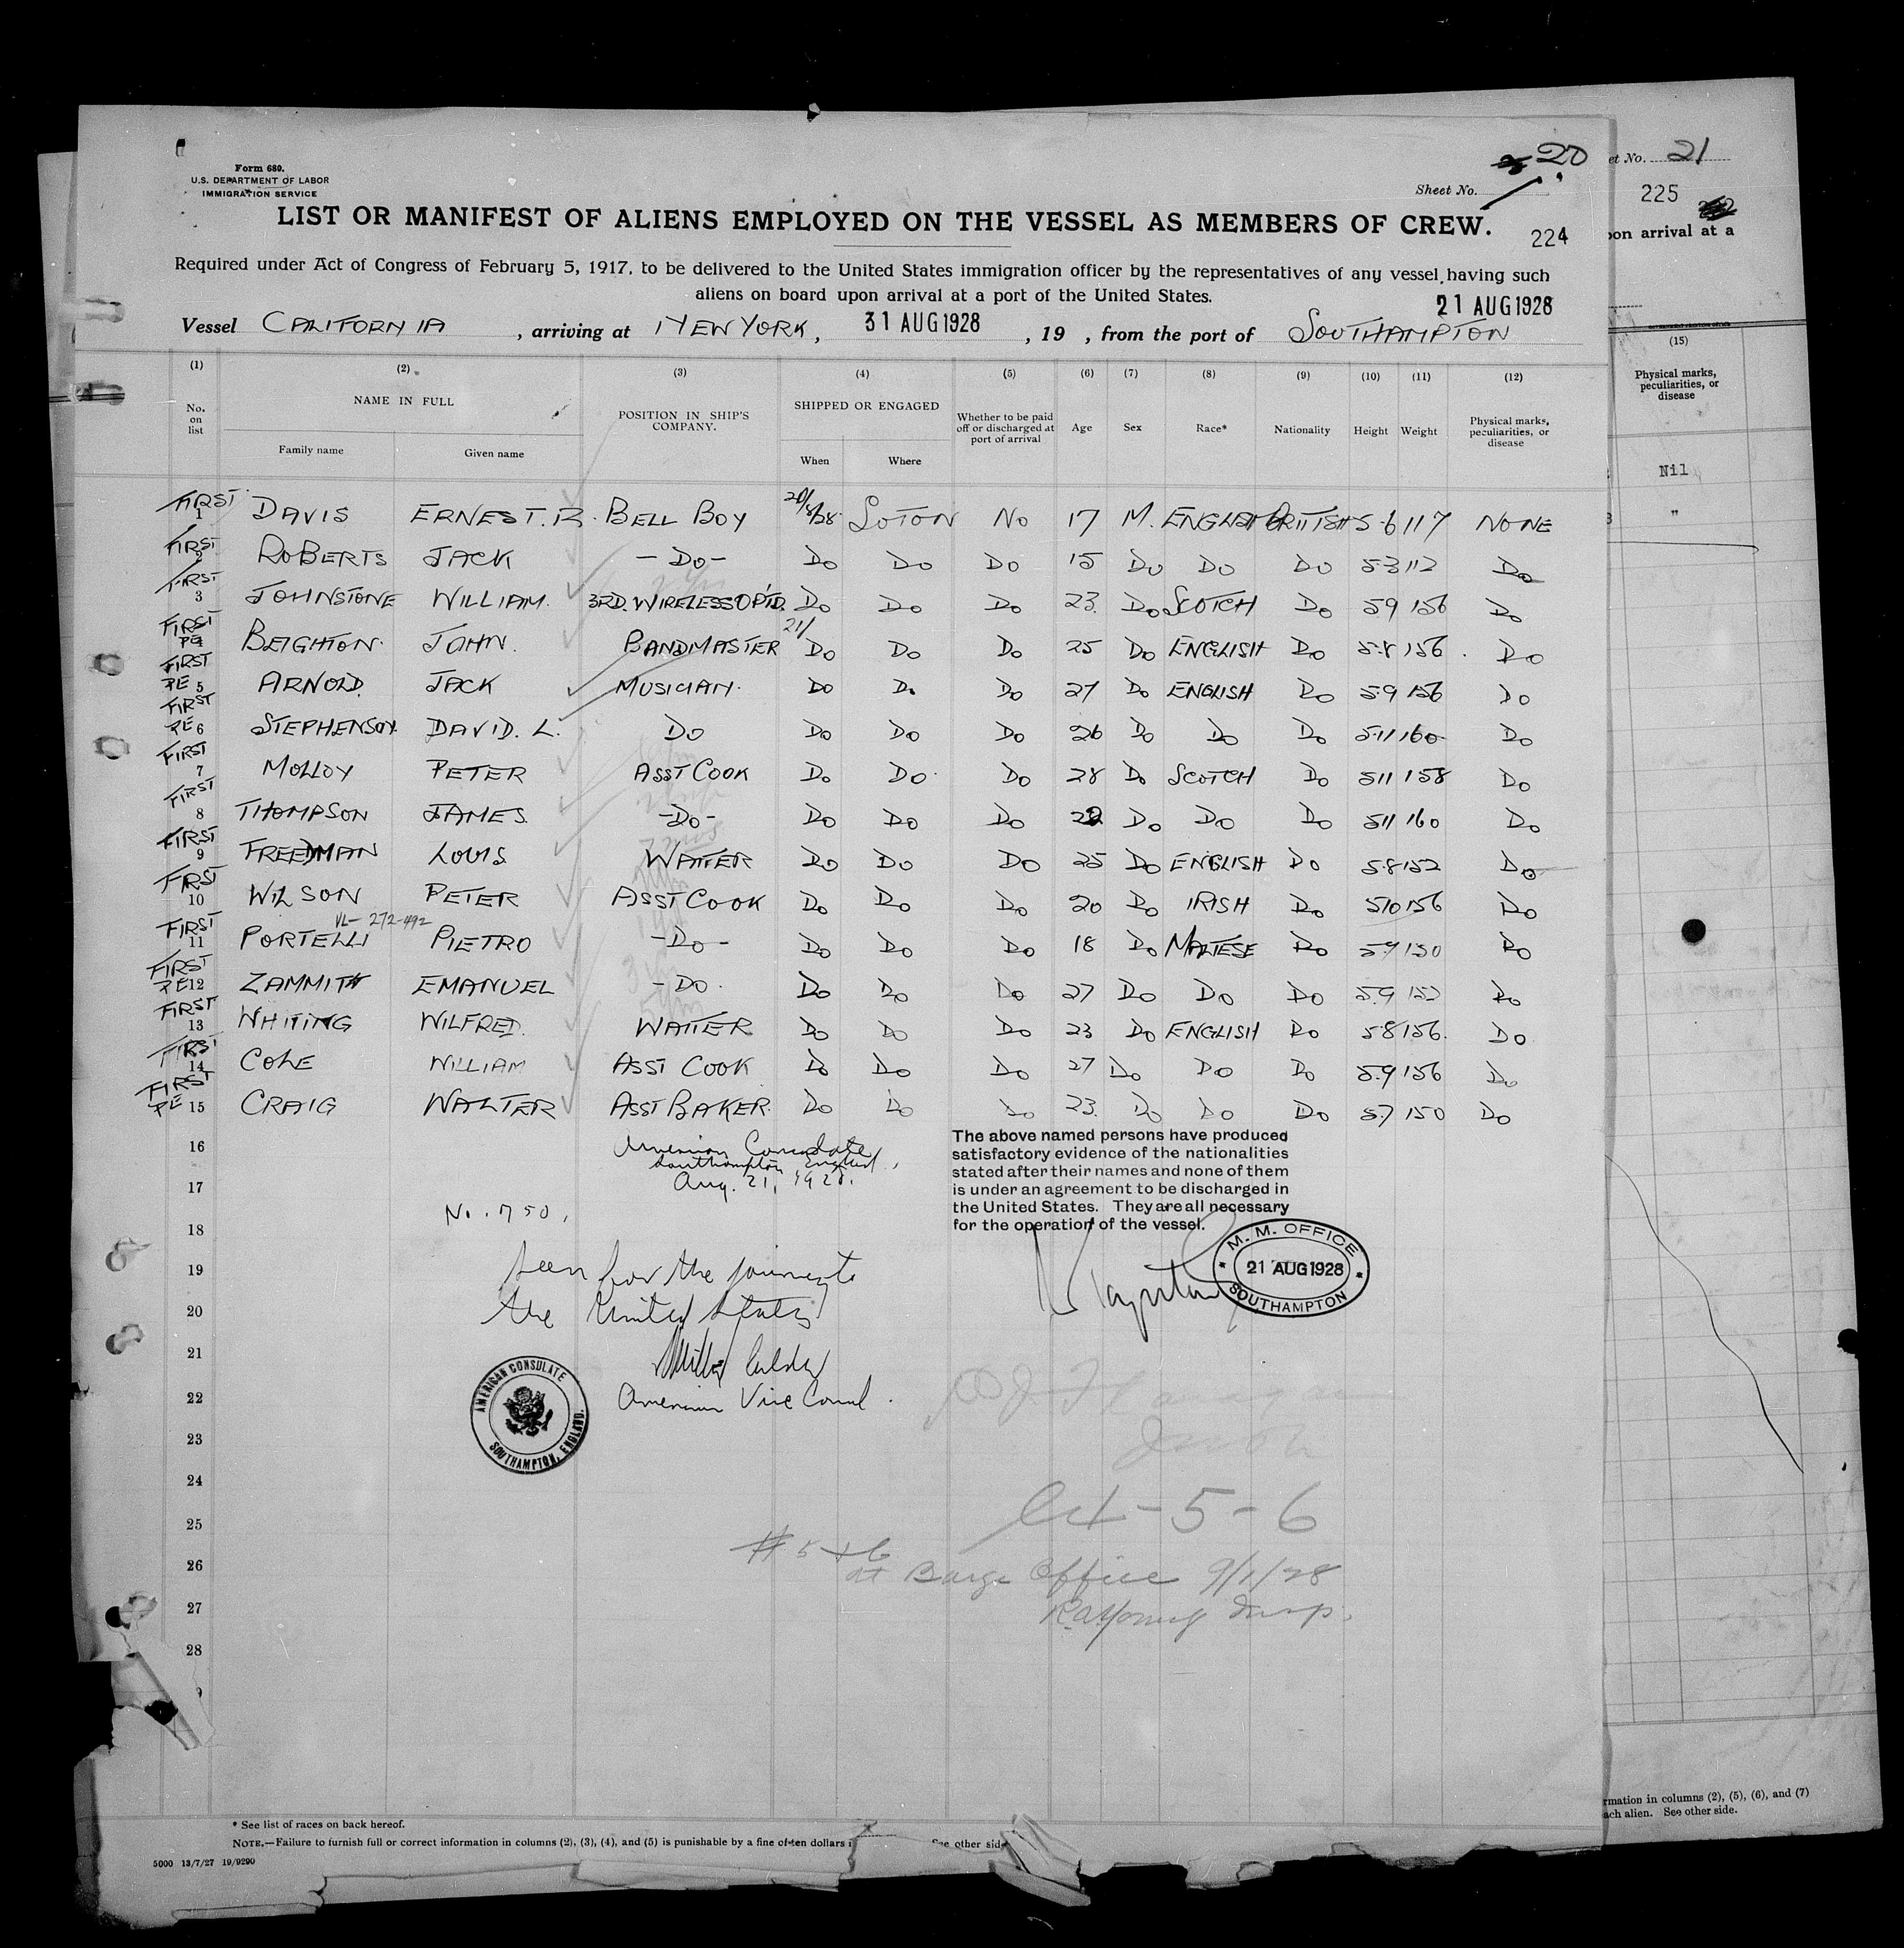 Form 680.
U.S. DEPARTMENT OF LABOR
IMMIGRATION SERVICE
20
Sheet No.
LIST OR MANIFEST OF ALIENS EMPLOYED ON THE VESSEL AS MEMBERS OF CREW.
224
Required under Act of Congress of February 5, 1917, to be delivered to the United States immigration officer by the representatives of any vessel having such
aliens on board upon arrival at a port of the United States.
21 AUG 1928
Vessel CALIFORNIA, arriving at NEW YORK, 31 AUG 1928, 19 , from the port of SOUTHAMPTON
(1) (2) (3) (4) (5) (6) (7) (8) (9) (10) (11) (12)
No. on list NAME IN FULL Family name Given name POSITION IN SHIP'S COMPANY. SHIPPED OR ENGAGED When Where Whether to be paid off or discharged at port of arrival Age Sex Race* Nationality Height Weight Physical marks, peculiarities, or disease
FIRST 1 DAVIS ERNEST. R. BELL BOY 20/8/28 SOTON NO 17 M. ENGLISH BRITISH 5-6 117 NONE
FIRST 2 ROBERTS JACK -DO- DO DO DO 15 DO DO DO 5-3 112 DO
FIRST 3 JOHNSTONE WILLIAM. 3RD. WIRELESS OPTD. DO DO DO 23. DO SCOTCH DO 5.9 156 DO
FIRST PE 4 BEIGHTON. JOHN. BANDMASTER 21/ DO DO DO 25 DO ENGLISH DO 5.8 156. DO
FIRST PE 5 ARNOLD. JACK MUSICIAN. DO DO DO 27 DO ENGLISH DO 5.9 156 DO
FIRST PE 6 STEPHENSON. DAVID. L. DO DO DO DO 26 DO DO DO 5.11 160 DO
FIRST 7 MOLLOY PETER ASST COOK DO DO. DO 28 DO SCOTCH DO 5.11 158 DO
FIRST 8 THOMPSON JAMES. -DO- DO DO DO 22 DO DO DO 5.11 160 DO
FIRST 9 FREEDMAN LOUIS. WAITER DO DO DO 25 DO ENGLISH DO 5.8 152 DO
FIRST 10 WILSON PETER ASST COOK DO DO DO 20 DO IRISH DO 5.10 156 DO
VL-272-492
FIRST 11 PORTELLI PIETRO -DO- DO DO DO 18 DO MALTESE DO 5.9 150 DO
FIRST PE 12 ZAMMITH EMANUEL -DO. DO DO DO 27 DO DO DO 5.9 152 DO
FIRST 13 WHITING WILFRED. WAITER DO DO DO 23 DO ENGLISH DO 5.8 156. DO
FIRST 14 COLE WILLIAM ASST COOK DO DO DO 27 DO DO DO 5.9 156 DO
FIRST PE 15 CRAIG WALTER ASST BAKER. DO DO DO 23. DO DO DO 5.7 150 DO
16
17
18
19
20
21
22
23
24
25
26
27
28
American Consulate
Southampton, England,
Aug. 21, 1928.
No. 750,
Seen for the journey to
the United States
American Vice Consul.
AMERICAN CONSULATE
SOUTHAMPTON, ENGLAND.
The above named persons have produced
satisfactory evidence of the nationalities
stated after their names and none of them
is under an agreement to be discharged in
the United States. They are all necessary
for the operation of the vessel.
M. M. OFFICE
21 AUG 1928
SOUTHAMPTON
- 5 - 6
# 5 & 6
at Barge Office 9/1/28
Insp.
* See list of races on back hereof.
NOTE.—Failure to furnish full or correct information in columns (2), (3), (4), and (5) is punishable by a fine of ten dollars
See other side
5000 13/7/27 19/9290
et No. 21
225
pon arrival at a
(15)
Physical marks,
peculiarities, or
disease
Nil
"
rmation in columns (2), (5), (6), and (7)
ach alien. See other side.